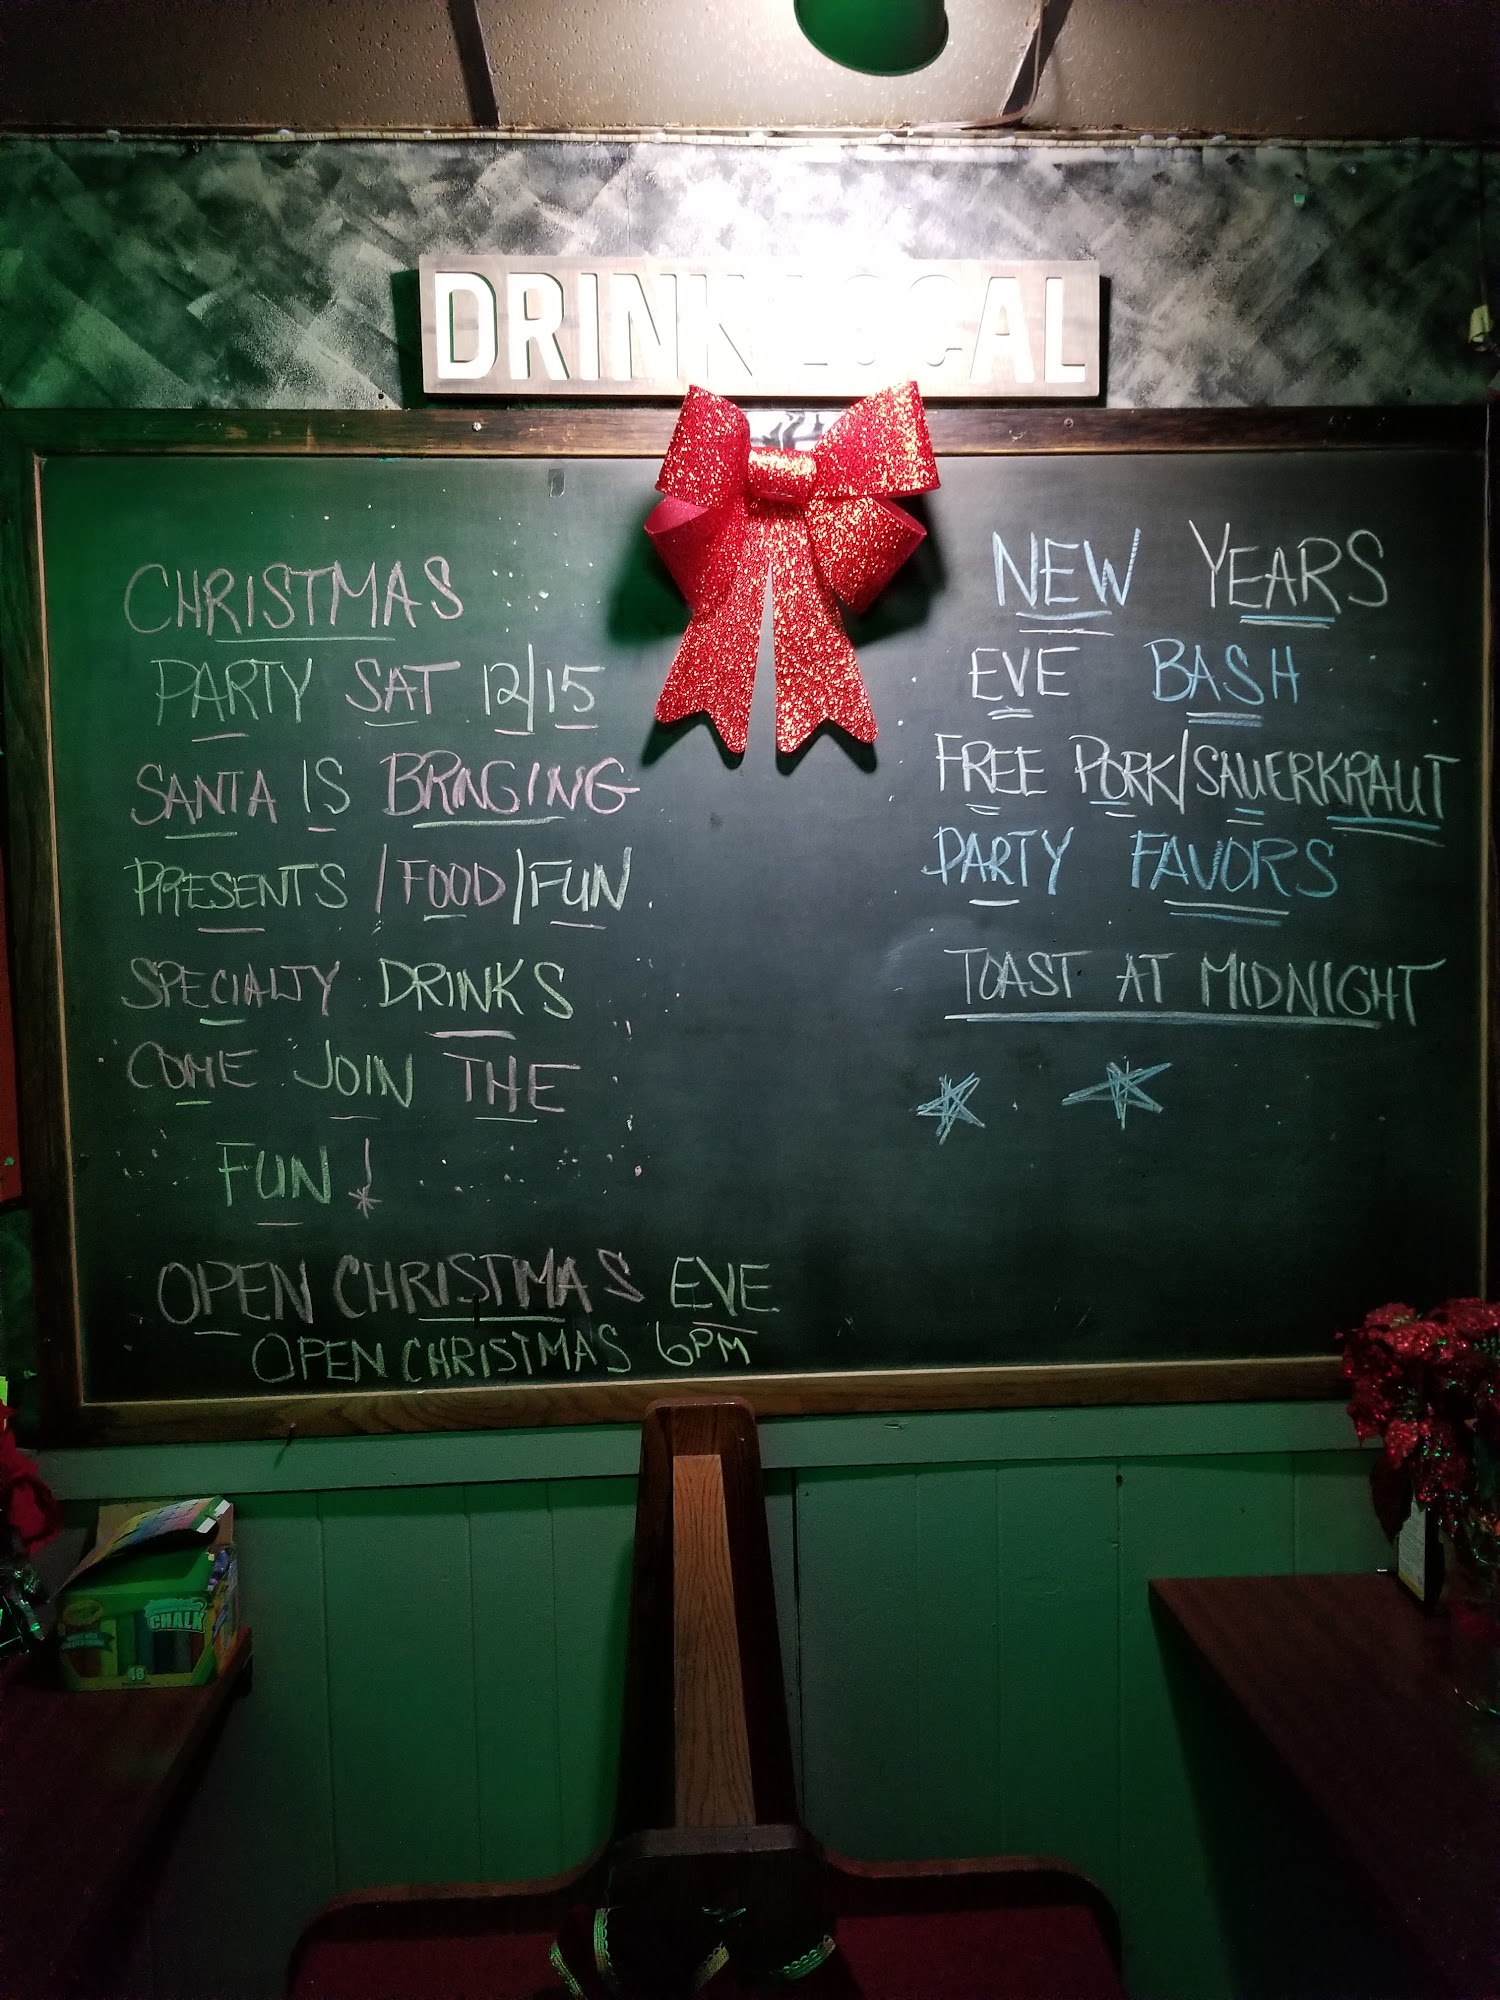 DRINK LOCAL
CHRISTMAS
PARTY SAT 12/15
SANTA IS BRNGING
PRESENTS /FOOD/FUN
SPECIALTY DRINKS
COME JOIN THE
FUN!
OPEN CHRISTMAS EVE
OPEN CHRISTMAS 6PM
NEW YEARS
EVE BASH
FREE PORK/SAUERKRAUT
PARTY FAVORS
TOAST AT MIDNIGHT
CHALK
48